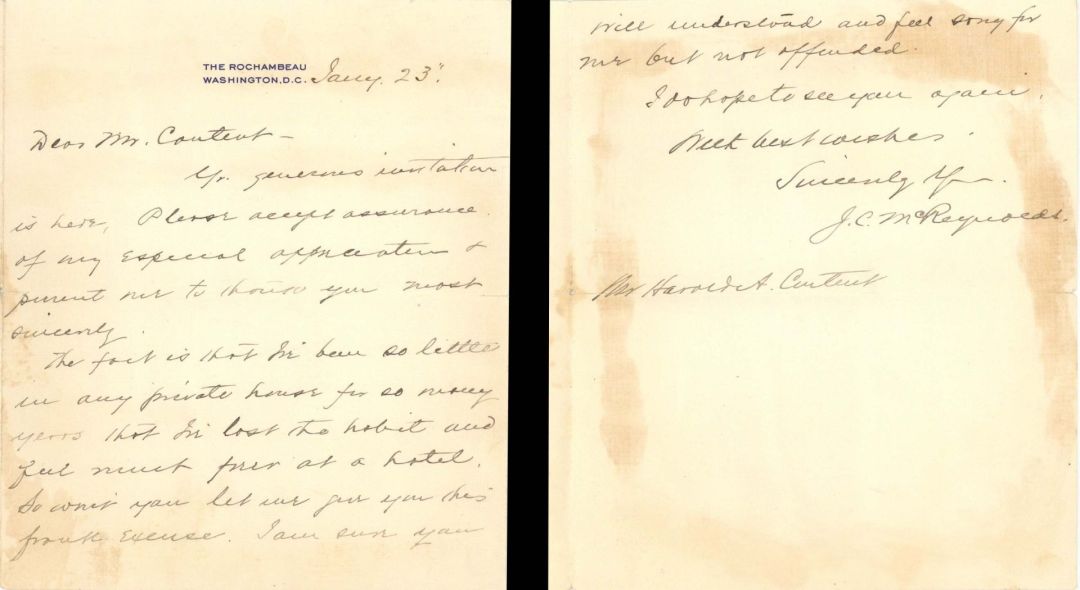 THE ROCHAMBEAU
WASHINGTON, D.C. Jany. 23"
Dear Mr. Content -
Yr. generous invitation
is here, Please accept assurance
of my especial appreciation &
permit me to thank you most
sincerely.
The fact is that I've been so little
in any private house for so many
years that I've lost the habit and
feel much freer at a hotel.
So won't you let me give you this
frank excuse. I am sure you
will understand and feel sorry for
me but not offended.
I do hope to see you again.
With best wishes
Sincerely Yr
J.C. McReynolds.
Mr Harold A. Content